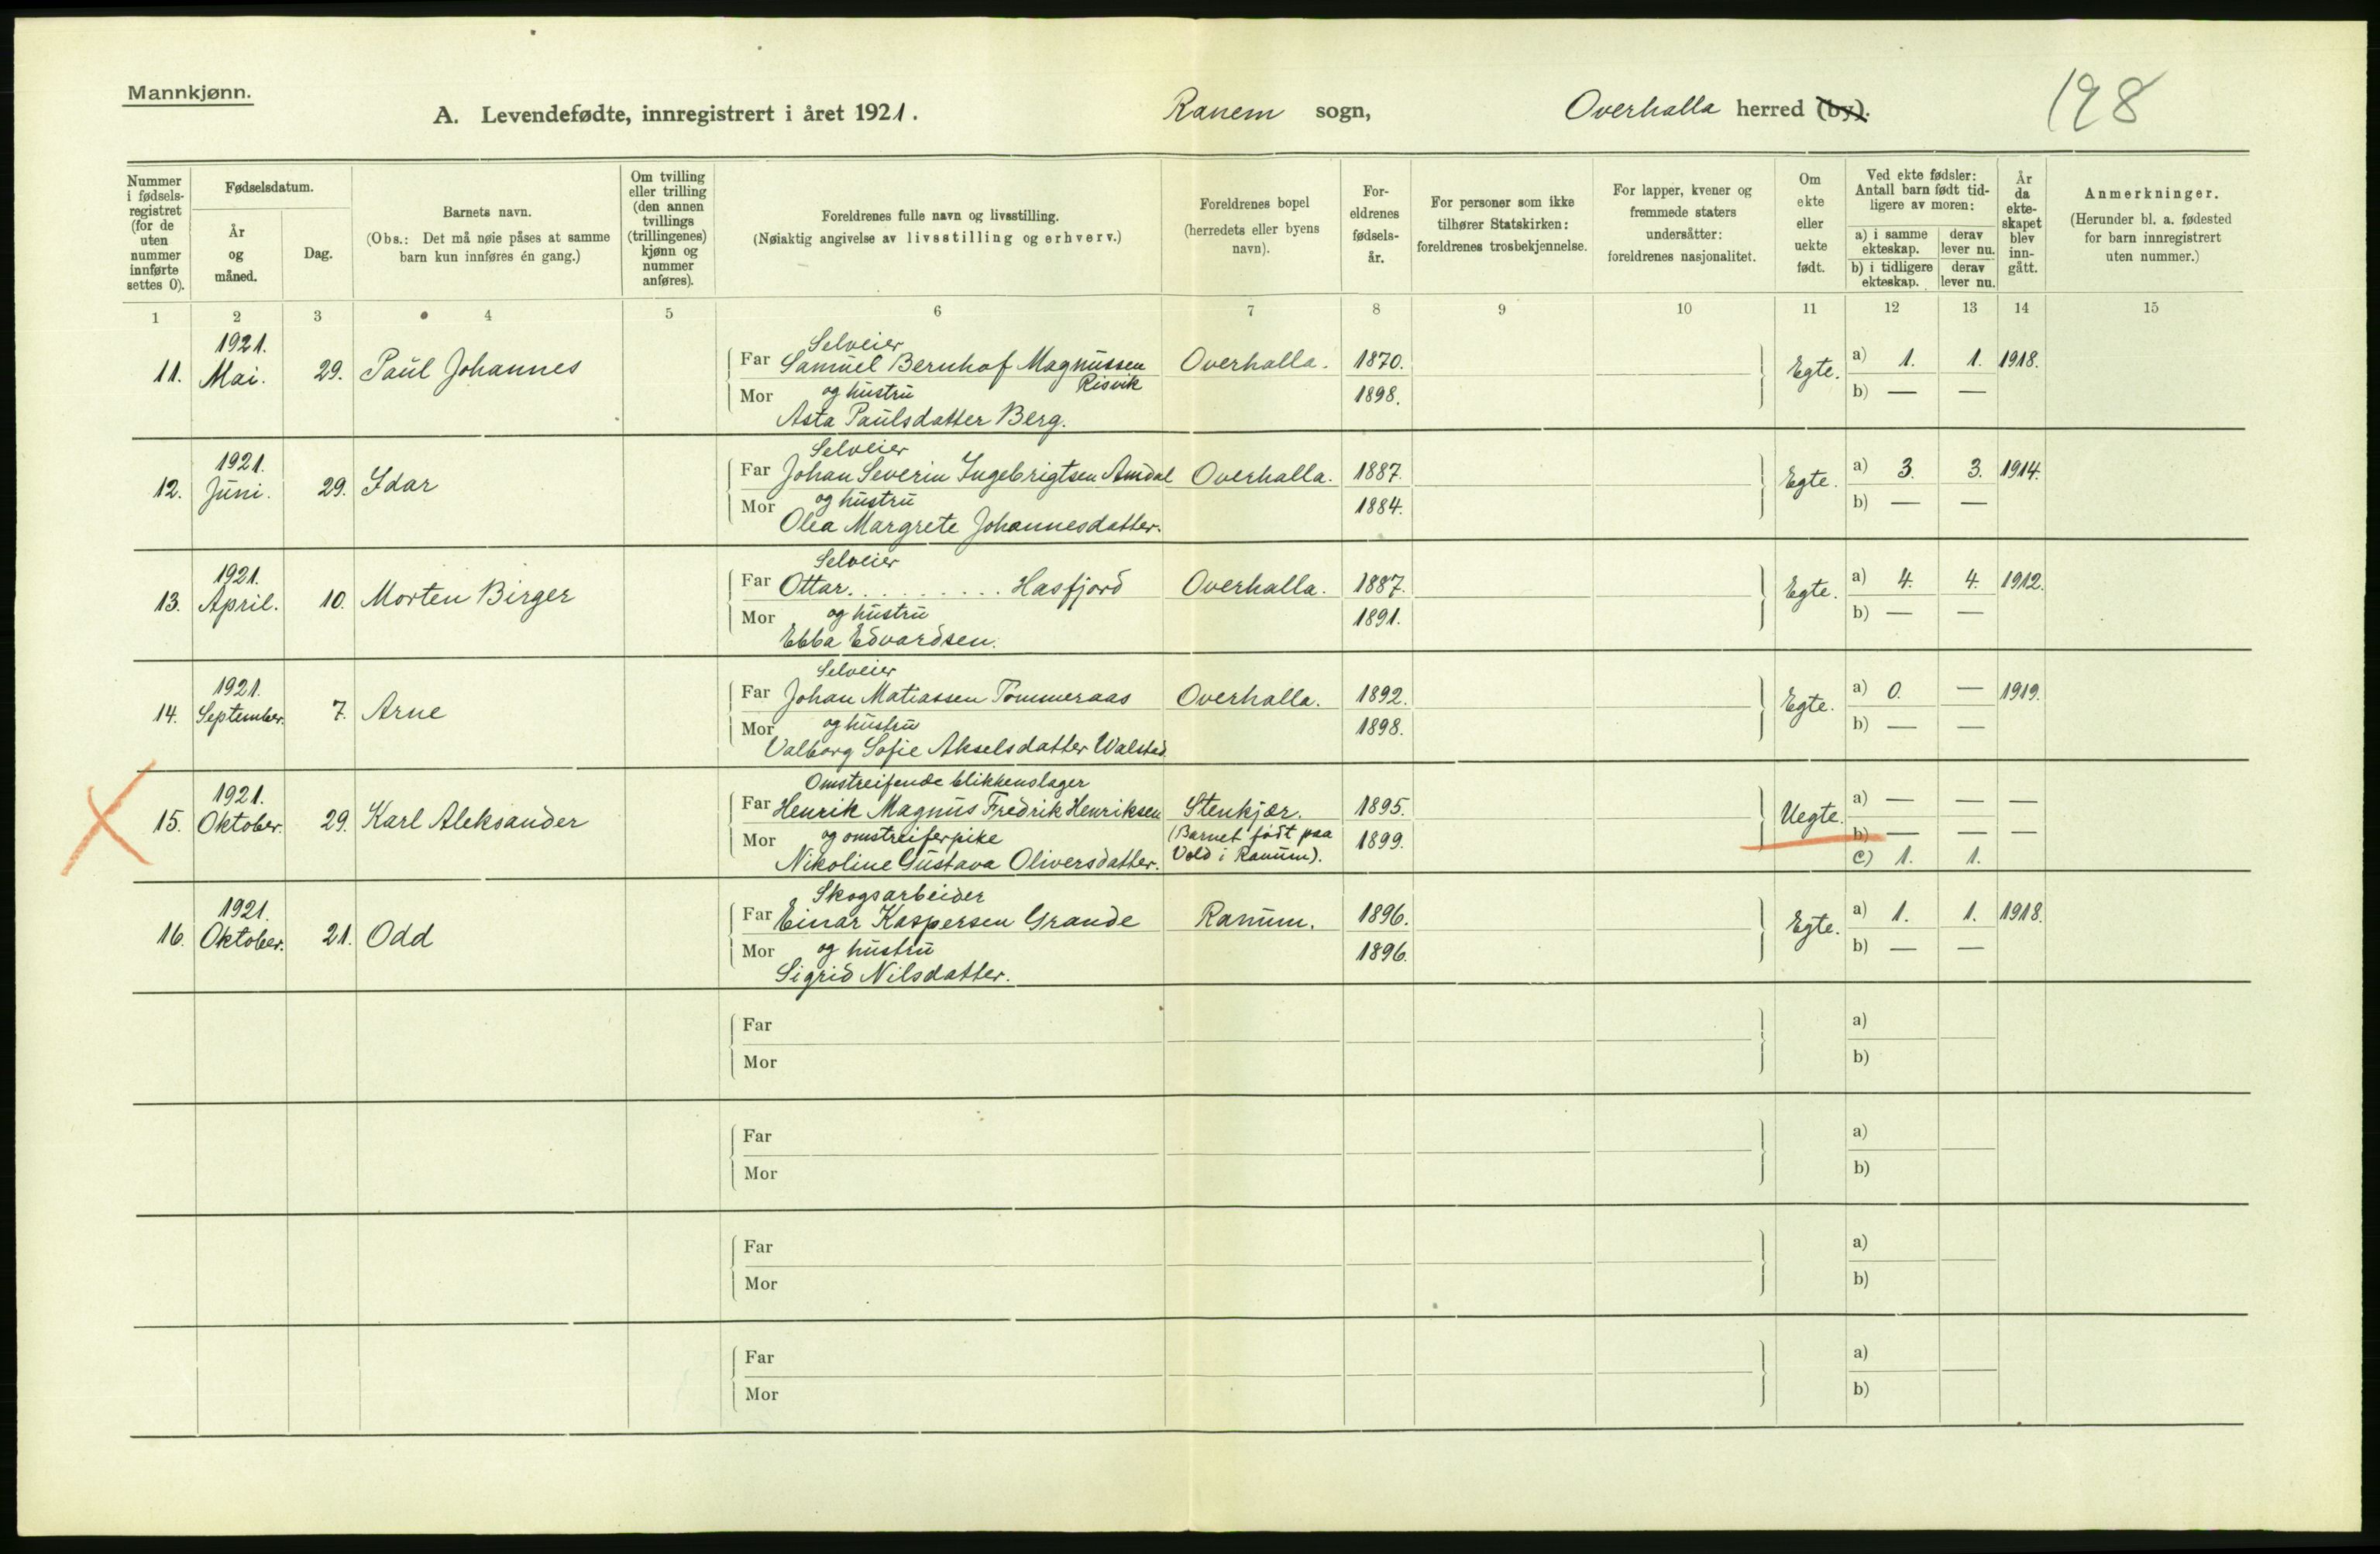 Mannkjønn.
A. Levendefødte, innregistrert i året 1921.
Ranem sogn,
Overhalla herred (by).
198
Nummer i fødsels-registret (for de uten nummer innførte settes 0).
Fødselsdatum.
År og måned.
Dag.
Barnets navn.
(Obs.: Det må nøie påses at samme barn kun innføres én gang.)
Om tvilling eller trilling (den annen tvillings (trillingenes) kjønn og nummer anføres).
Foreldrenes fulle navn og livsstilling.
(Nøiaktig angivelse av livsstilling og erhverv.)
Foreldrenes bopel (herredets eller byens navn).
For-eldrenes fødsels-år.
For personer som ikke tilhører Statskirken: foreldrenes trosbekjennelse.
For lapper, kvener og fremmede staters undersåtter: foreldrenes nasjonalitet.
Om ekte eller uekte født.
Ved ekte fødsler: Antall barn født tid-ligere av moren:
a) i samme ekteskap.
derav lever nu.
b) i tidligere ekteskap.
derav lever nu.
År da ekte-skapet blev inn-gått.
Anmerkninger.
(Herunder bl. a. fødested for barn innregistrert uten nummer.)
1 2 3 4 5 6 7 8 9 10 11 12 13 14 15
1921.
Selveier
11. Mai. 29. Paul Johannes Far Samuel Bernhof Magnussen Overhalla. 1870. Egte. a) 1. 1. 1918.
Risvik
Mor og hustru 1898. b) — —
Asta Paulsdatter Berg.
1921.
Selveier
12. Juni. 29. Idar Far Johan Severin Ingebrigtsen Amdal Overhalla. 1887. Egte. a) 3. 3. 1914.
Mor og hustru 1884. b) — —
Olea Margrete Johannesdatter.
1921.
Selveier
13. April. 10. Morten Birger Far Ottar. . . . . . . . . . Hasfjord Overhalla. 1887. Egte. a) 4. 4. 1912.
Mor og hustru 1891. b) — —
Ebba Edvardsen.
1921.
Selveier
14. September. 7. Arne Far Johan Matiassen Tømmeraas Overhalla. 1892. Egte. a) 0. — 1919.
Mor og hustru 1898. b) — —
Valborg Sofie Akselsdatter Walstad.
1921.
Omstreifende blikkenslager
15. Oktober. 29. Karl Aleksander Far Henrik Magnus Fredrik Henriksen Stenkjær. 1895. Uegte. a) — — —
Mor og omstreiferpike (Barnet født paa 1899. b) — — —
Nikoline Gustava Oliversdatter. Vold i Ranum). c) 1. 1.
1921.
Skogsarbeider
16. Oktober. 21. Odd Far Einar Kaspersen Grande Ranum. 1896. Egte. a) 1. 1. 1918.
Mor og hustru 1896. b) — —
Sigrid Nilsdatter.
Far a)
Mor b)
Far a)
Mor b)
Far a)
Mor b)
Far a)
Mor b)